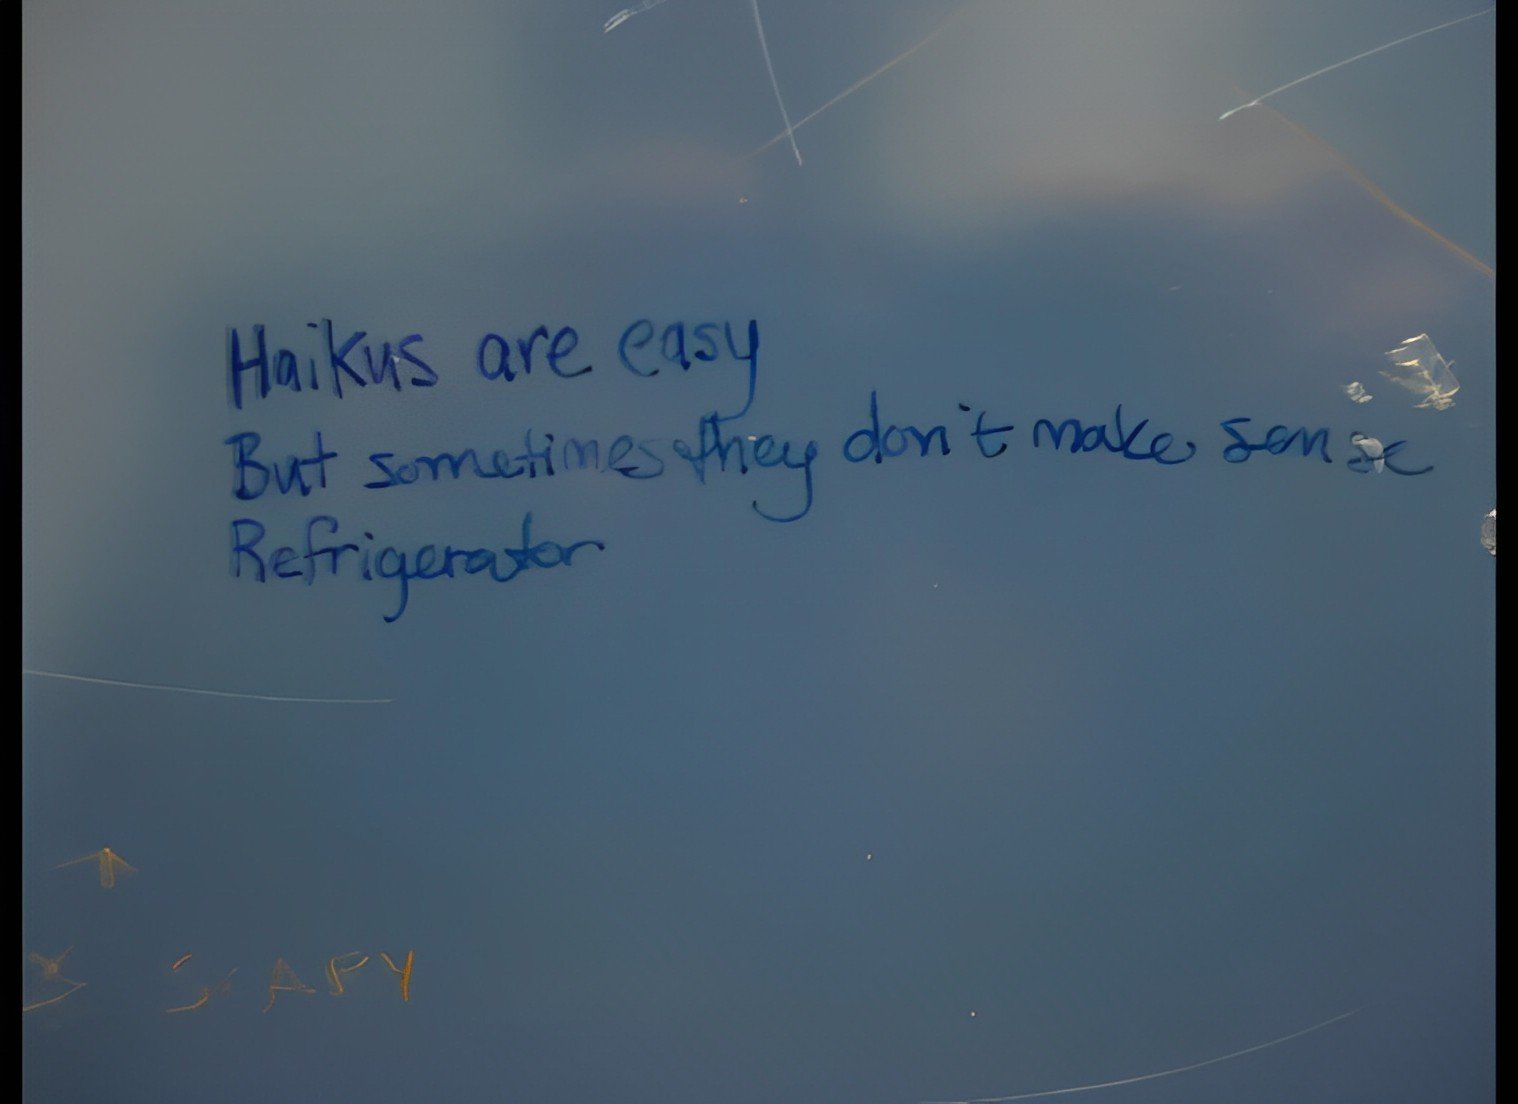 Haikus are easy
But sometimes they don't make sense
Refrigerator